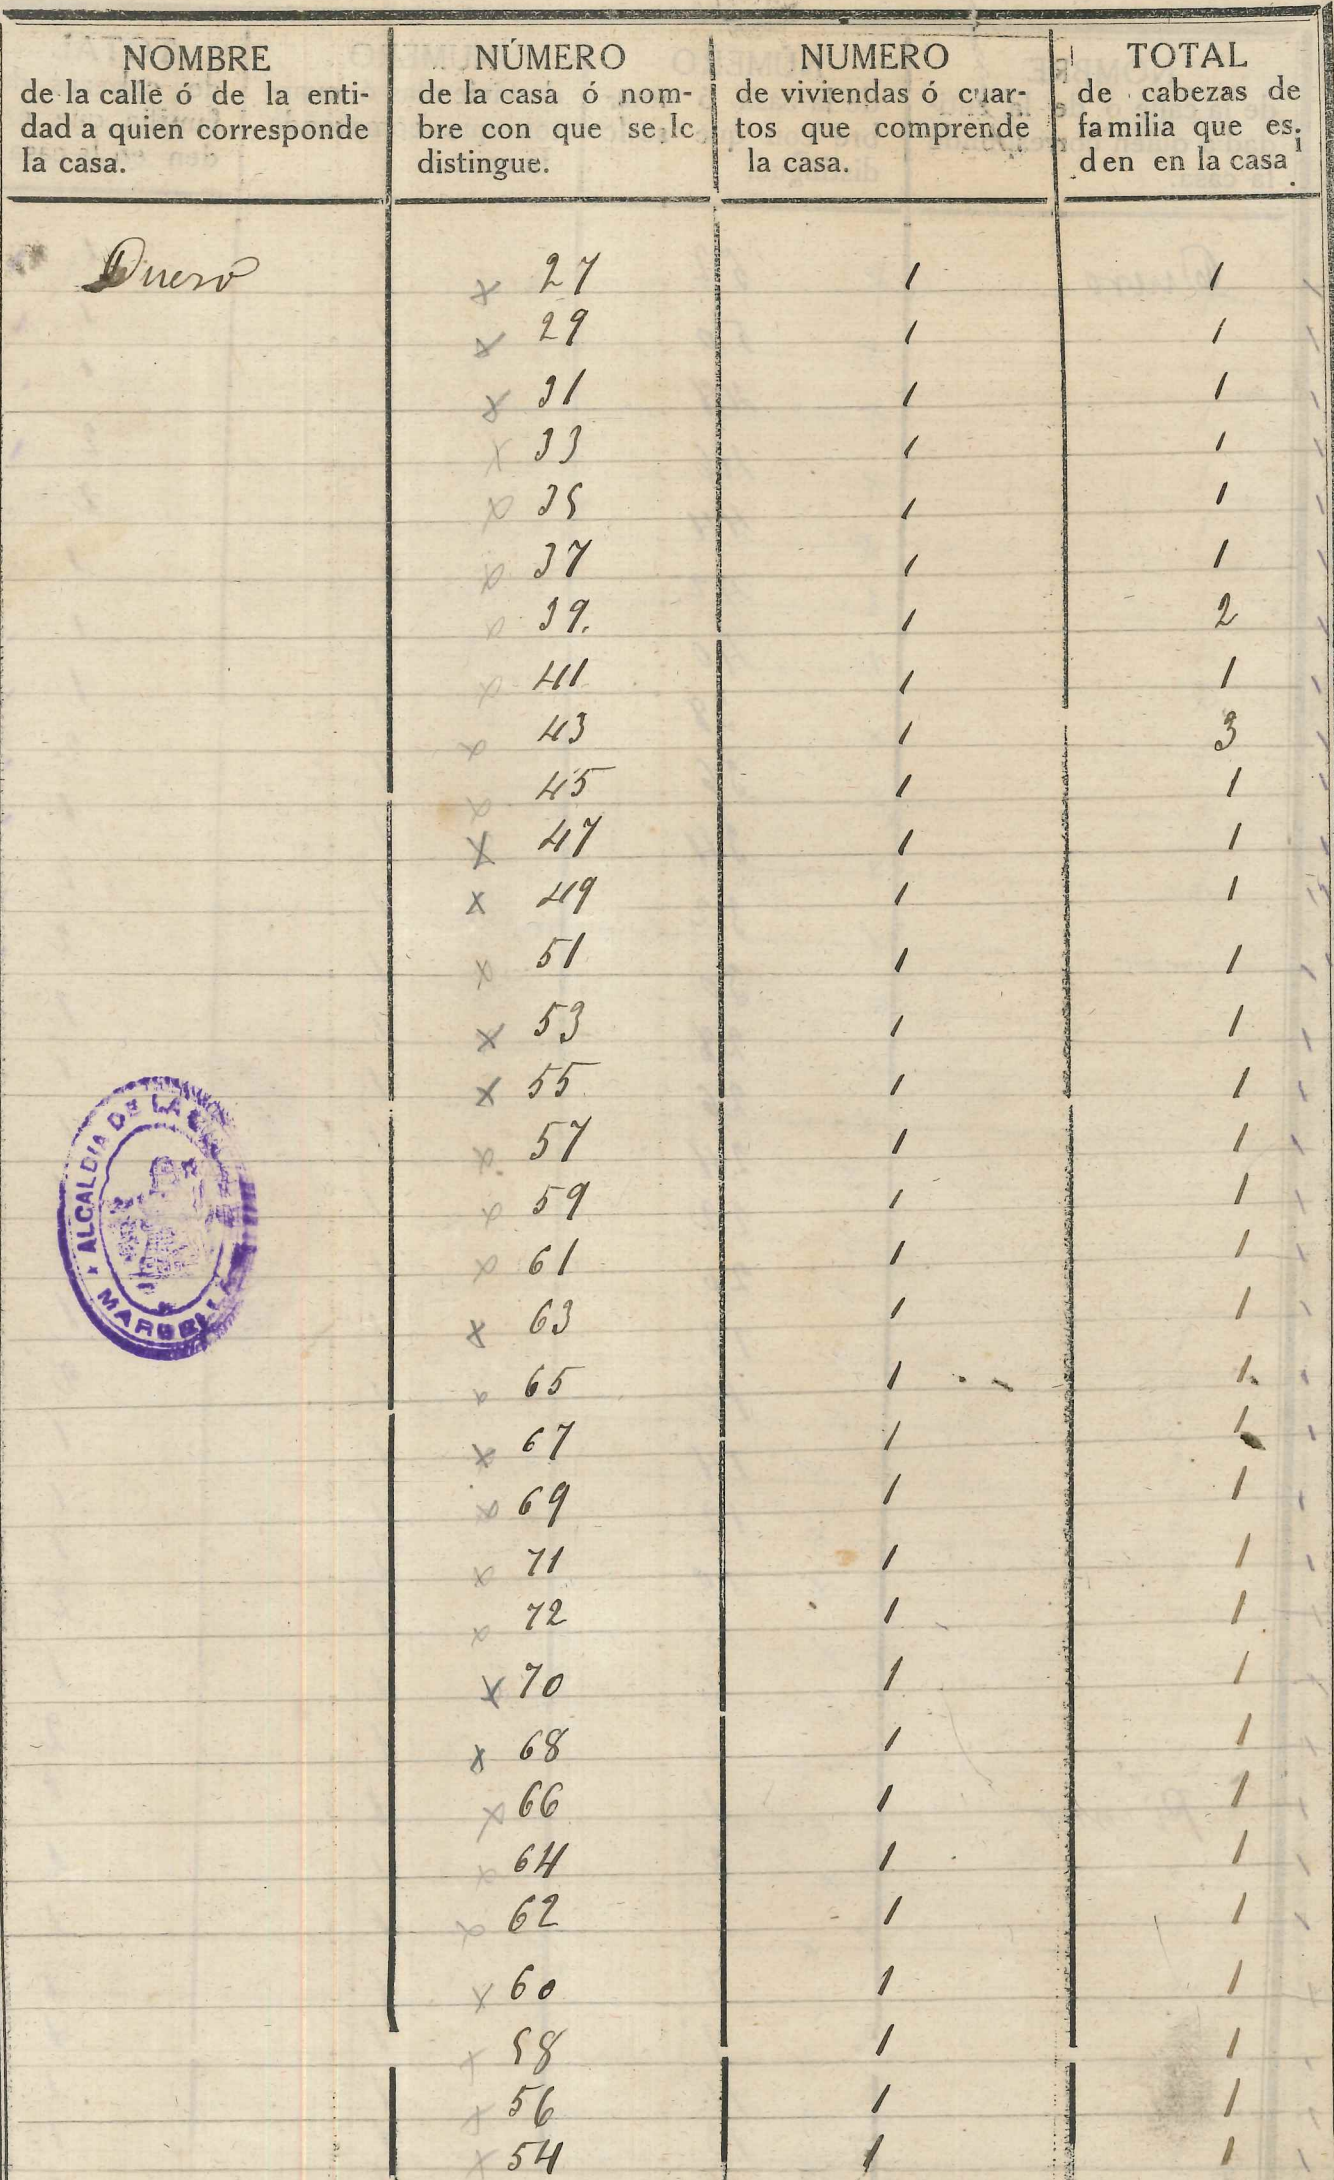 NOMBRE
de la calle ó de la enti-
dad a quien corresponde
la casa.
NÚMERO
de la casa ó nom-
bre con que se le
distingue.
NUMERO
de viviendas ó cuar-
tos que comprende
la casa.
TOTAL
de cabezas de
familia que es.
den en la casa
Duero x 27 1 1
x 29 1 1
x 31 1 1
x 33 1 1
x 35 1 1
x 37 1 1
x 39. 1 2
x 41 1 1
x 43 1 3
x 45 1 1
x 47 1 1
x 49 1 1
x 51 1 1
x 53 1 1
x 55 1 1
x 57 1 1
x 59 1 1
x 61 1 1
x 63 1 1
x 65 1 1
x 67 1 1
x 69 1 1
x 71 1 1
x 72 1 1
x 70 1 1
x 68 1 1
x 66 1 1
x 64 1 1
x 62 1 1
x 60 1 1
x 58 1 1
x 56 1 1
x 54 1 1
ALCALDIA DE LA
MARBELLA